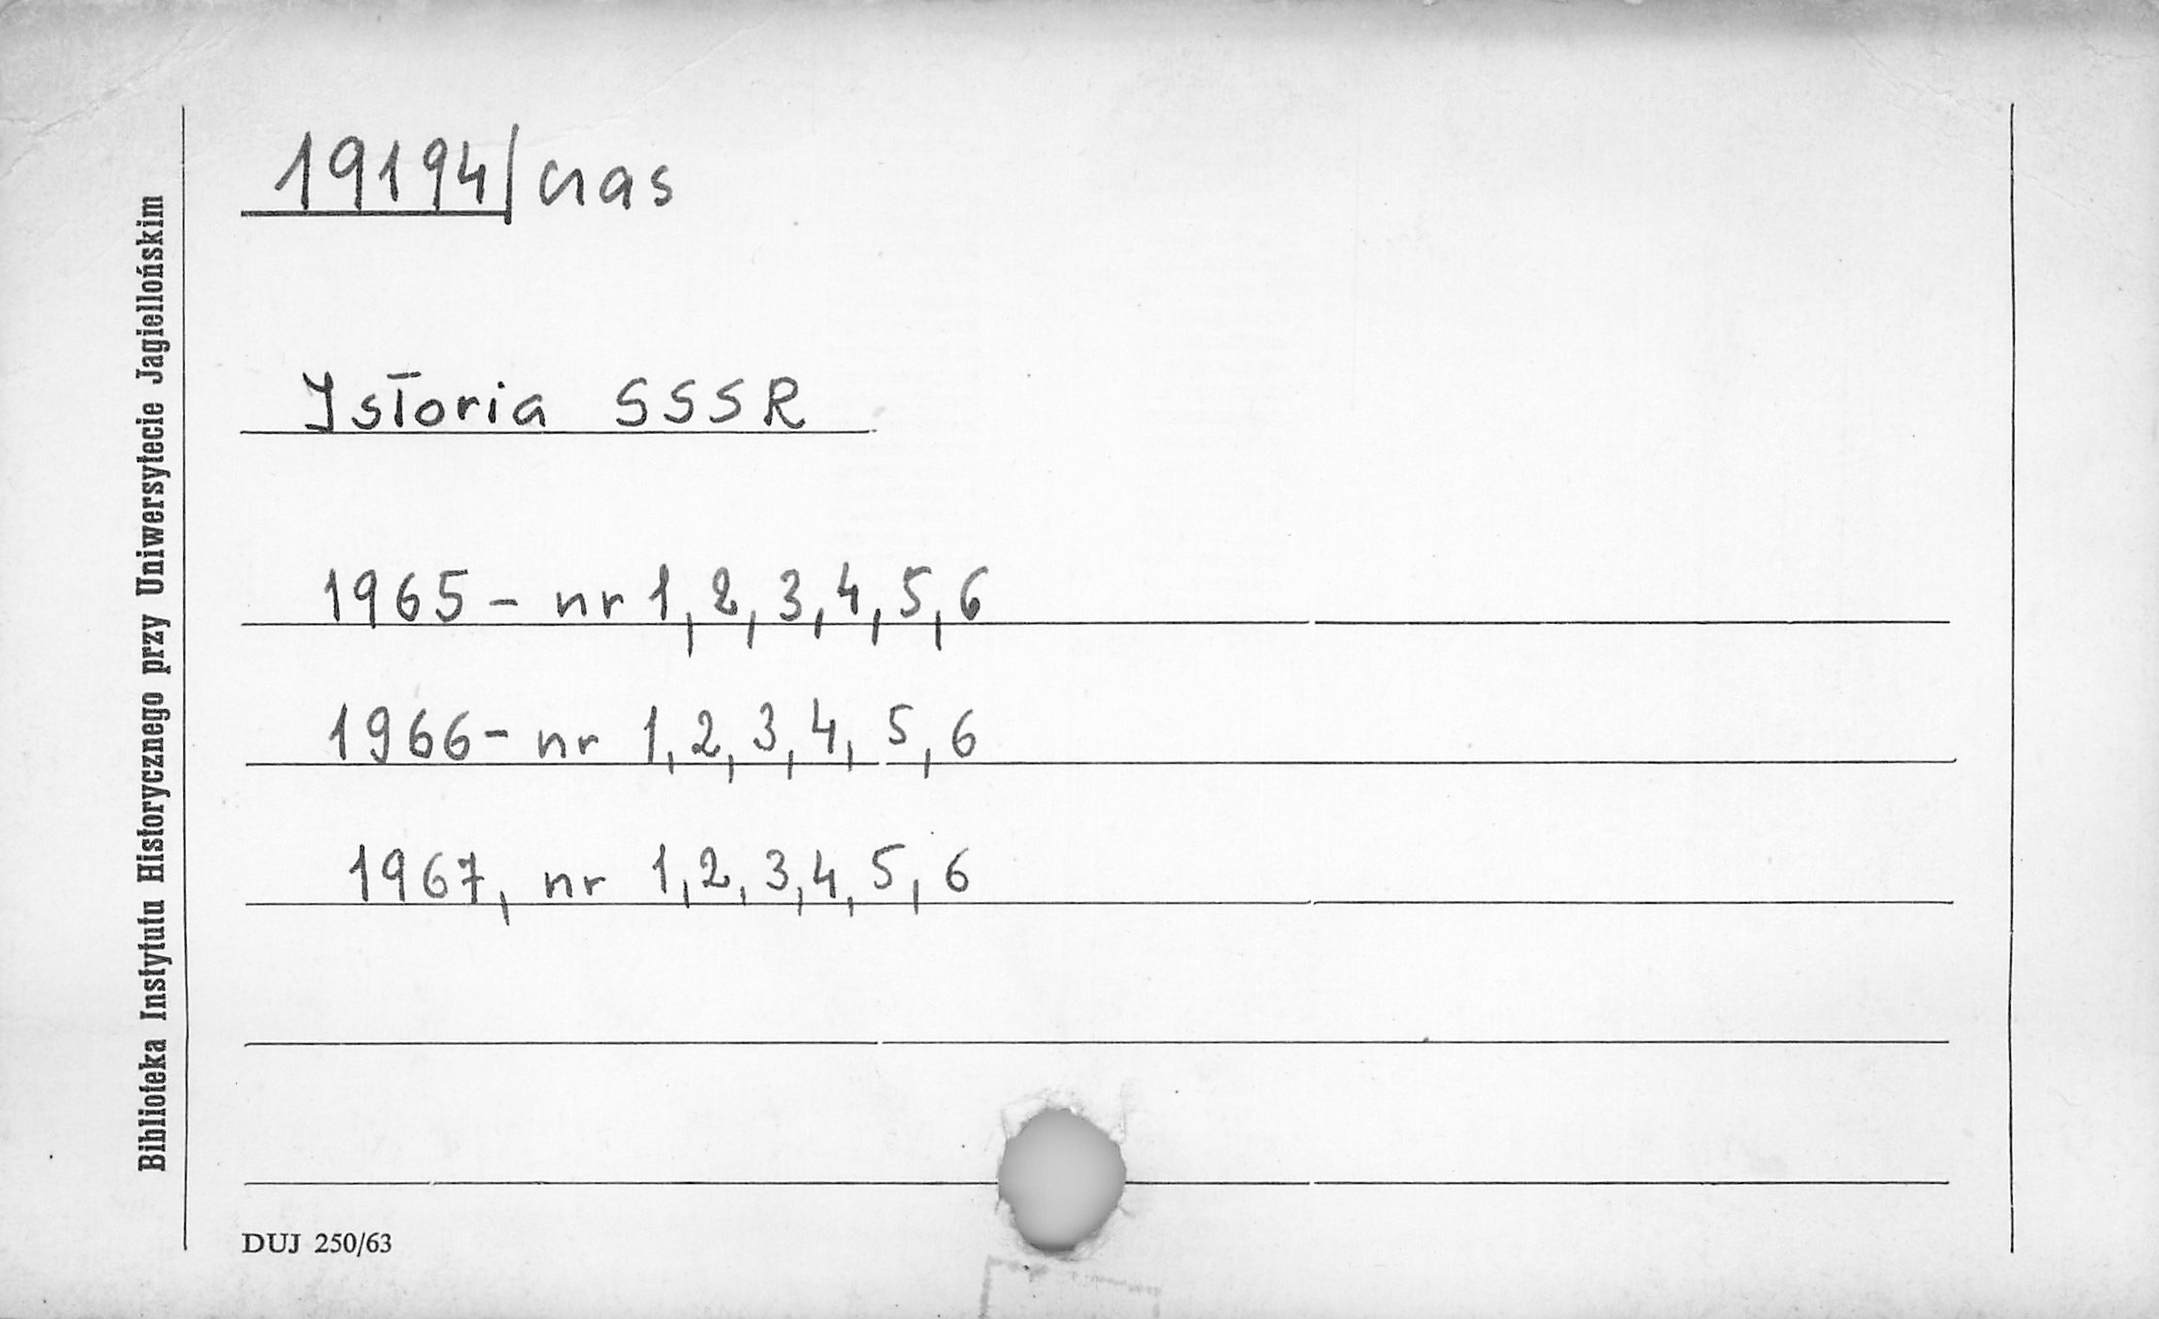 19194/czas
Istoria SSSR
1965 - nr 1, 2, 3, 4, 5, 6
1966 - nr 1, 2, 3, 4, 5, 6
1967, nr 1, 2, 3, 4, 5, 6
Biblioteka Instytutu Historycznego przy Uniwersytecie Jagiellońskim
DUJ 250/63